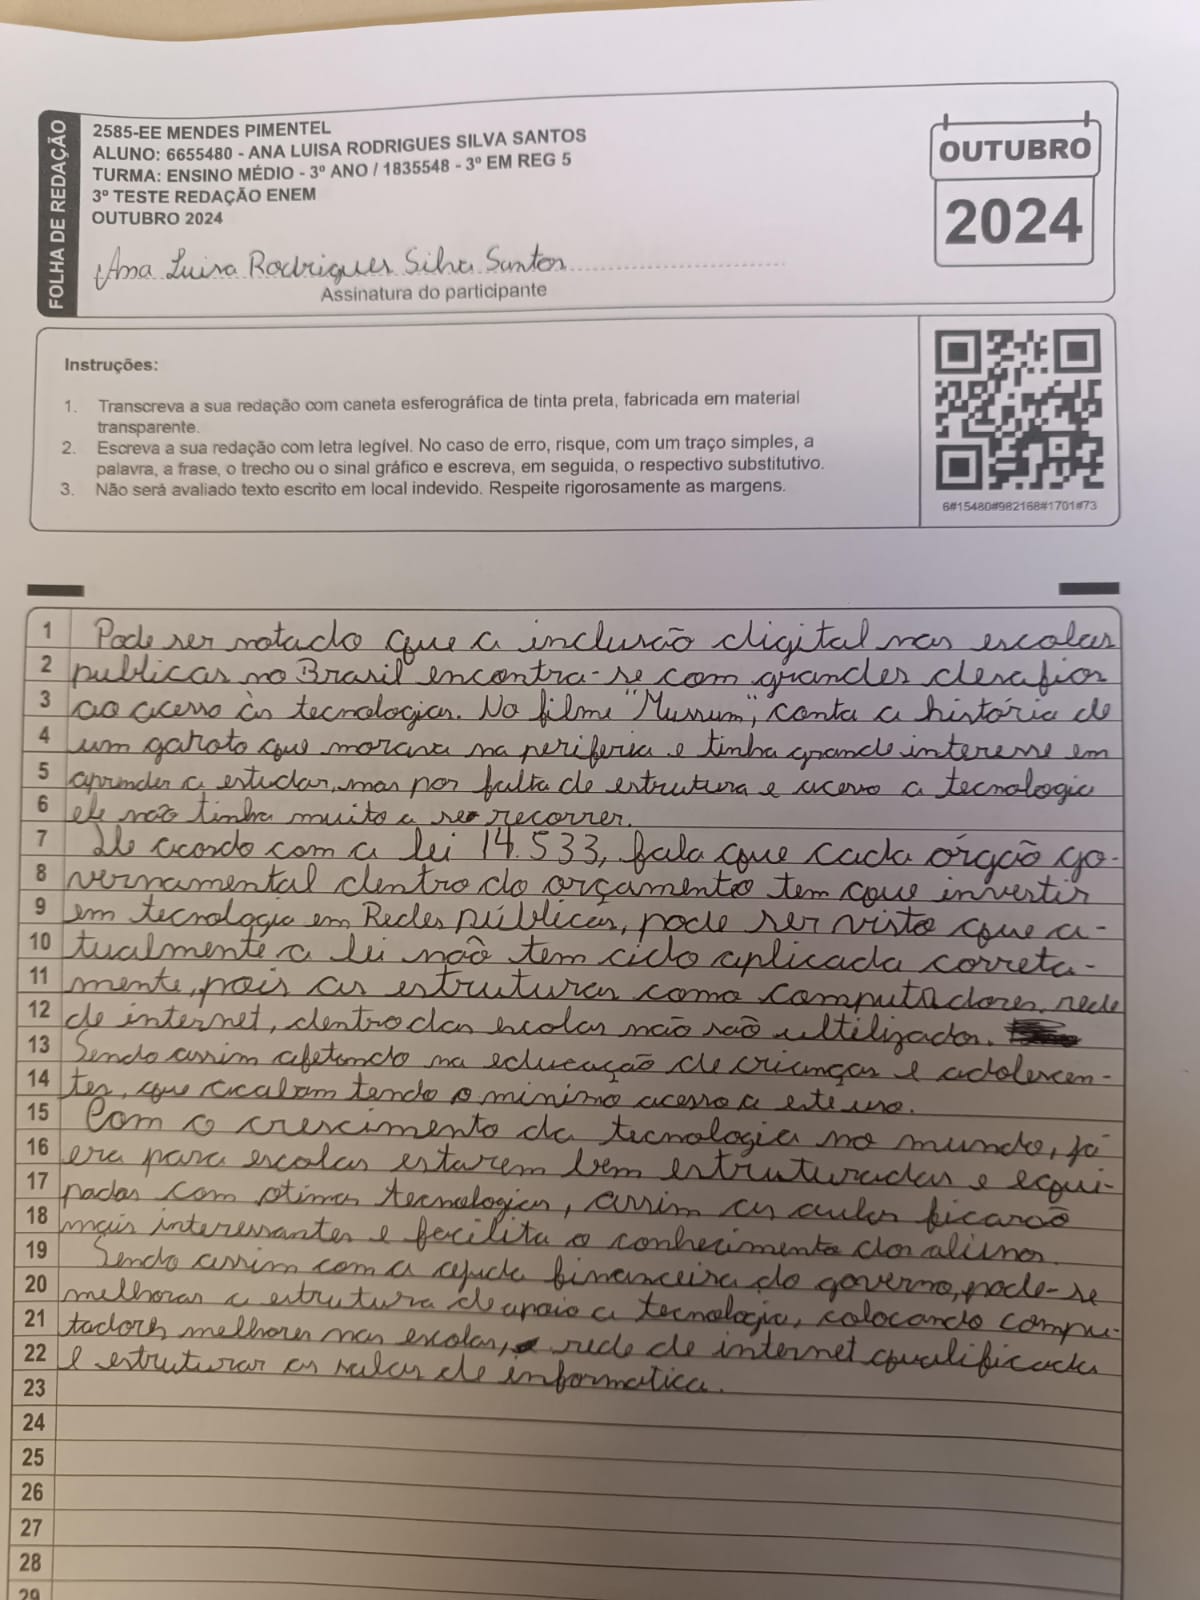 FOLHA DE REDAÇÃO
2585-EE MENDES PIMENTEL
ALUNO: 6655480 - ANA LUISA RODRIGUES SILVA SANTOS
TURMA: ENSINO MÉDIO - 3º ANO / 1835548 - 3º EM REG 5
3º TESTE REDAÇÃO ENEM
OUTUBRO 2024
Ana Luisa Rodrigues Silva Santos
Assinatura do participante
OUTUBRO
2024
Instruções:
1. Transcreva a sua redação com caneta esferográfica de tinta preta, fabricada em material
transparente.
2. Escreva a sua redação com letra legível. No caso de erro, risque, com um traço simples, a
palavra, a frase, o trecho ou o sinal gráfico e escreva, em seguida, o respectivo substitutivo.
3. Não será avaliado texto escrito em local indevido. Respeite rigorosamente as margens.
6#15480#982168#1701#73
1 Pode ser notado que a inclusão digital nas escolas
2 publicas no Brasil encontra-se com grandes desafios
3 ao acesso às tecnologias. No filme "Mussum", conta a história de
4 um garoto que morava na periferia e tinha grande interesse em
5 aprender a estudar, mas por falta de estrutura e acesso a tecnologia
6 ele não tinha muito a se recorrer.
7 De acordo com a lei 14.533, fala que cada órgão go-
8 vernamental dentro do orçamento tem que investir
9 em tecnologia em Redes públicas, pode ser visto que a-
10 tualmente a lei não tem cido aplicada correta-
11 mente, pois as estruturas como computadores, rede
12 de internet, dentro das escolas não são ultilizados.
13 Sendo assim afetando na educação de crianças e adolescen-
14 tes, que acabam tendo o minimo acesso a este uso.
15 Com o crescimento da tecnologia no mundo, já
16 era para escolas estarem bem estruturadas e equi-
17 padas com otimas tecnologias, assim as aulas ficarão
18 mais interessantes e facilita o conhecimento dos alunos.
19 Sendo assim com a ajuda financeira do governo, pode-se
20 melhorar a estrutura de apoio a tecnologia, colocando compu-
21 tadores melhores nas escolas, rede de internet qualificada
22 e estruturar as salas de informatica.
23
24
25
26
27
28
29